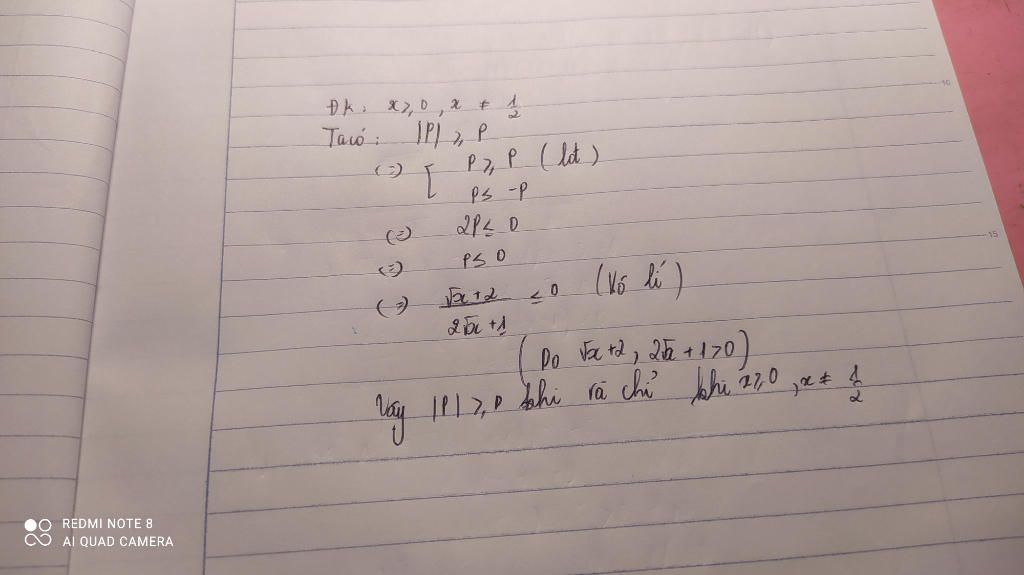 Đk: x ⩾ 0, x ≠ 1/2
Ta có: |P| ⩾ P
(=) [ P ⩾ P (lđ)
P ≤ -P
(=) 2P ≤ 0
(=) P ≤ 0
(=) (√x+2)/(2√x+1) ≤ 0 (Vô lí)
(Do √x+2, 2√x+1>0)
Vậy |P| ⩾ P khi và chỉ khi x ⩾ 0, x ≠ 1/2
10
15
REDMI NOTE 8
AI QUAD CAMERA